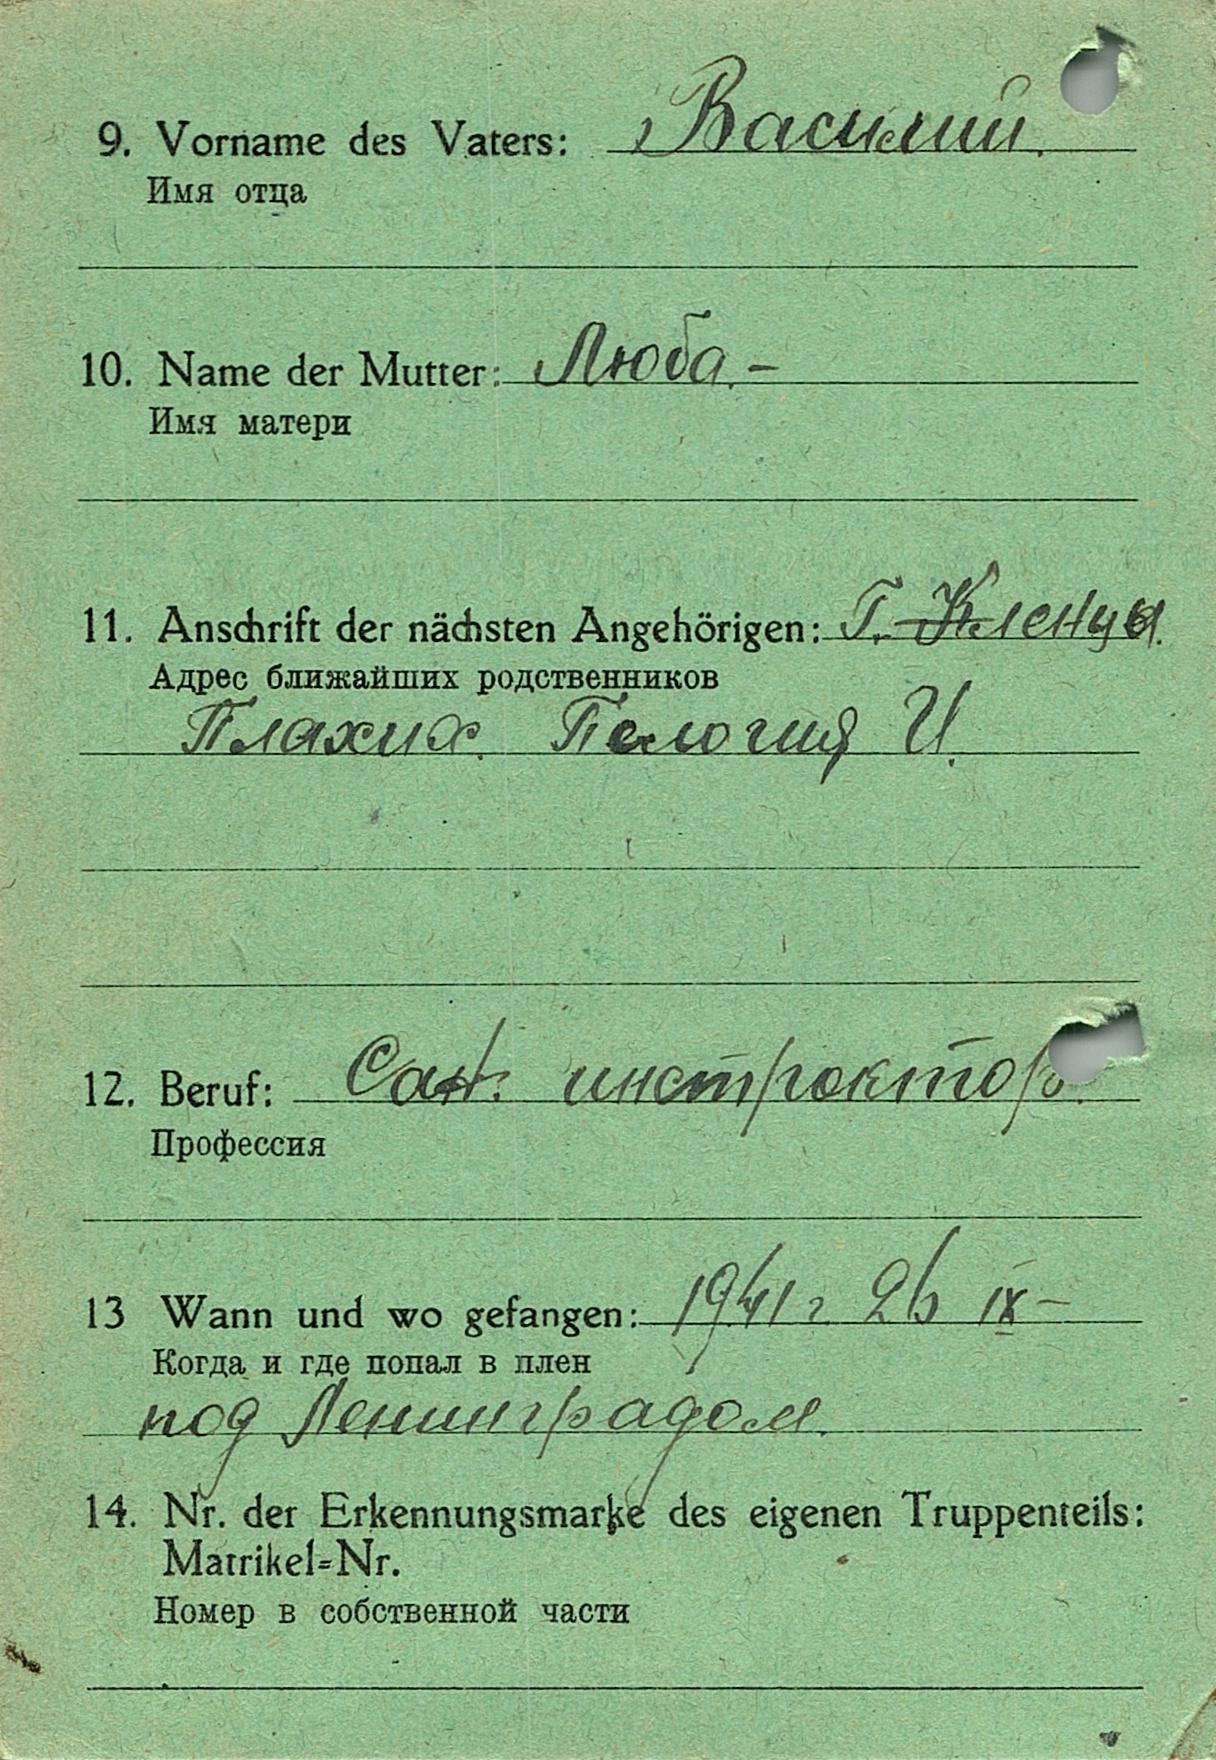 9. Vorname des Vaters: Василий.
Имя отца
10. Name der Mutter: Люба. –
Имя матери
11. Anschrift der nächsten Angehörigen: Г. Кленцы.
Адрес ближайших родственников
Плахих. Пелогия И.
12. Beruf: Сан. инстроктор.
Профессия
13 Wann und wo gefangen: 1941 г 26 IX –
Когда и где попал в плен
под Ленинградом.
14. Nr. der Erkennungsmarke des eigenen Truppenteils:
Matrikel=Nr.
Номер в собственной части